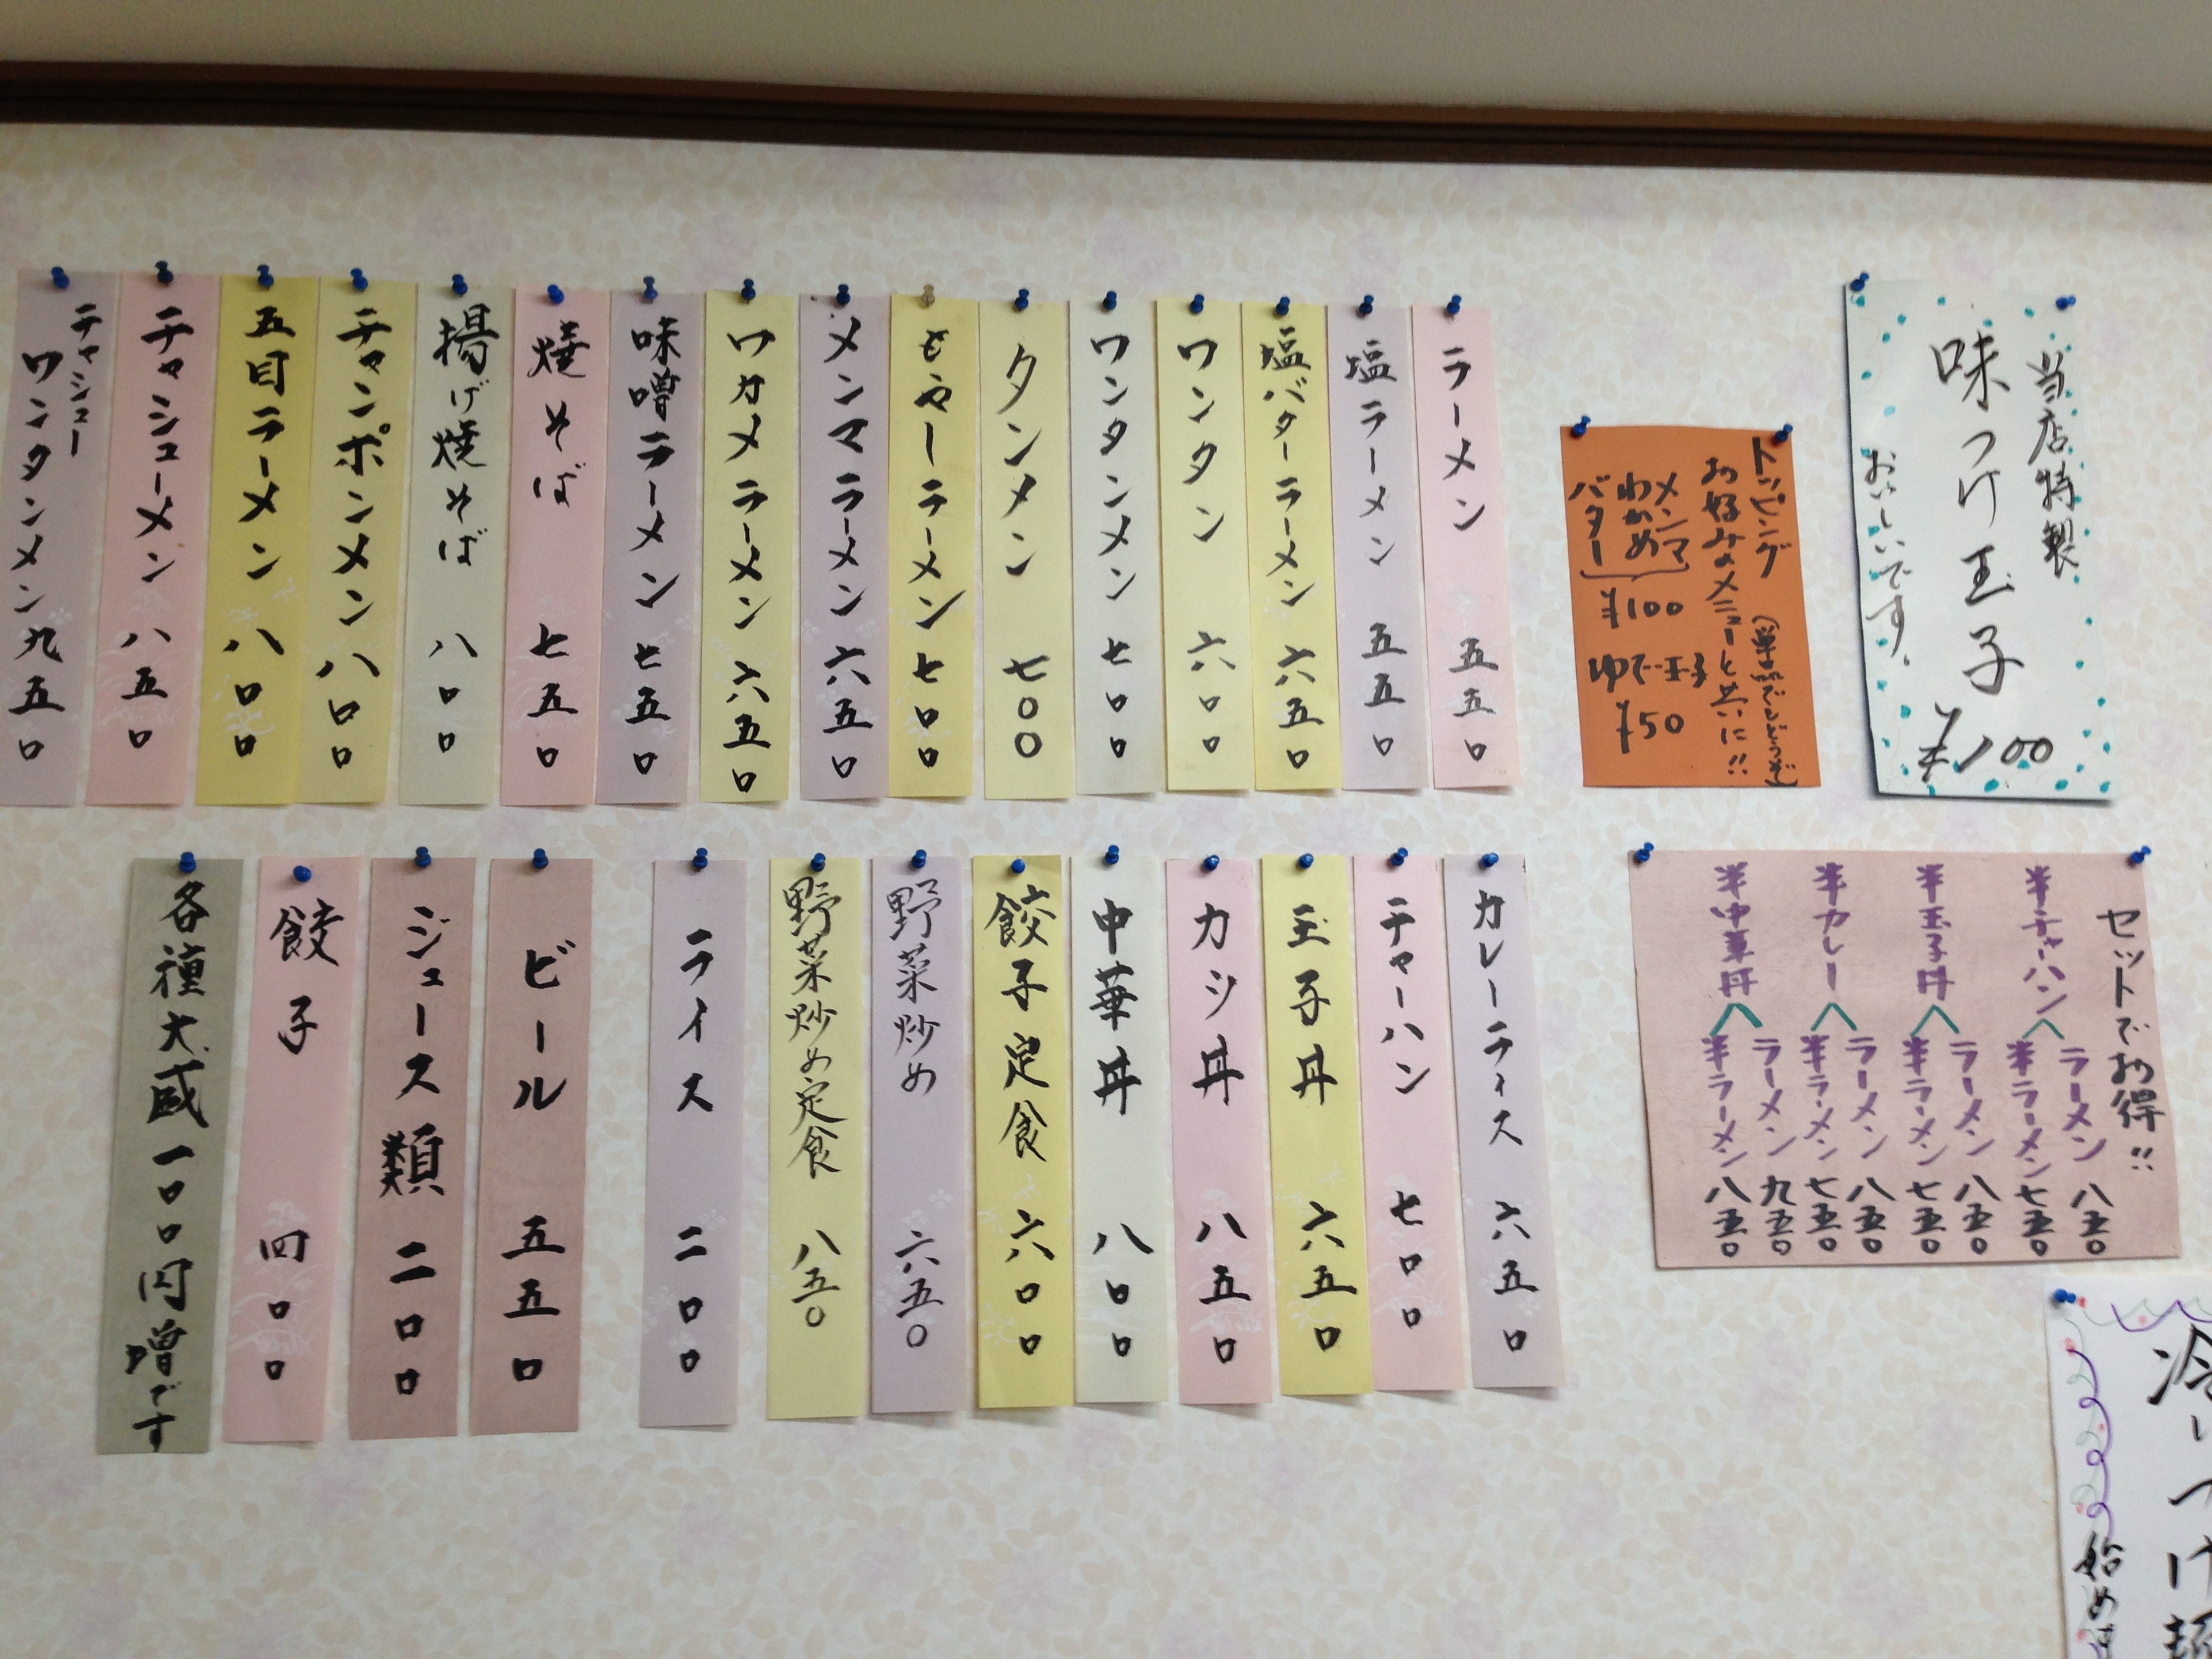 当店特製
味つけ玉子 ¥100
おいしいです。
トッピング (単品でもどうぞ)
お好みのメニューと共に!!
メンマ
わかめ
バター
¥100
ゆで玉子
¥50
ラーメン 五五〇
塩ラーメン 五五〇
塩バターラーメン 六五〇
ワンタン 六〇〇
ワンタンメン 七〇〇
タンメン 七〇〇
もやしラーメン 七〇〇
メンマラーメン 六五〇
ワカメラーメン 六五〇
味噌ラーメン 七五〇
焼そば 七五〇
揚げ焼そば 八〇〇
チャンポンメン 八〇〇
五目ラーメン 八〇〇
チャシューメン 八五〇
チャシュー
ワンタンメン 九五〇
セットでお得!!
半チャハン
ラーメン 八五〇
半ラーメン 七五〇
半玉子丼
ラーメン 八五〇
半ラーメン 七五〇
半カレー
ラーメン 八五〇
半ラーメン 七五〇
半中華丼
ラーメン 九五〇
半ラーメン 八五〇
カレーライス 六五〇
チャーハン 七〇〇
玉子丼 六五〇
カツ丼 八五〇
中華丼 八〇〇
餃子定食 六〇〇
野菜炒め 六五〇
野菜炒め定食 八五〇
ライス 二〇〇
ビール 五五〇
ジュース類 二〇〇
餃子 四〇〇
各種大盛一〇〇円増です
冷しつけ麺
始めま